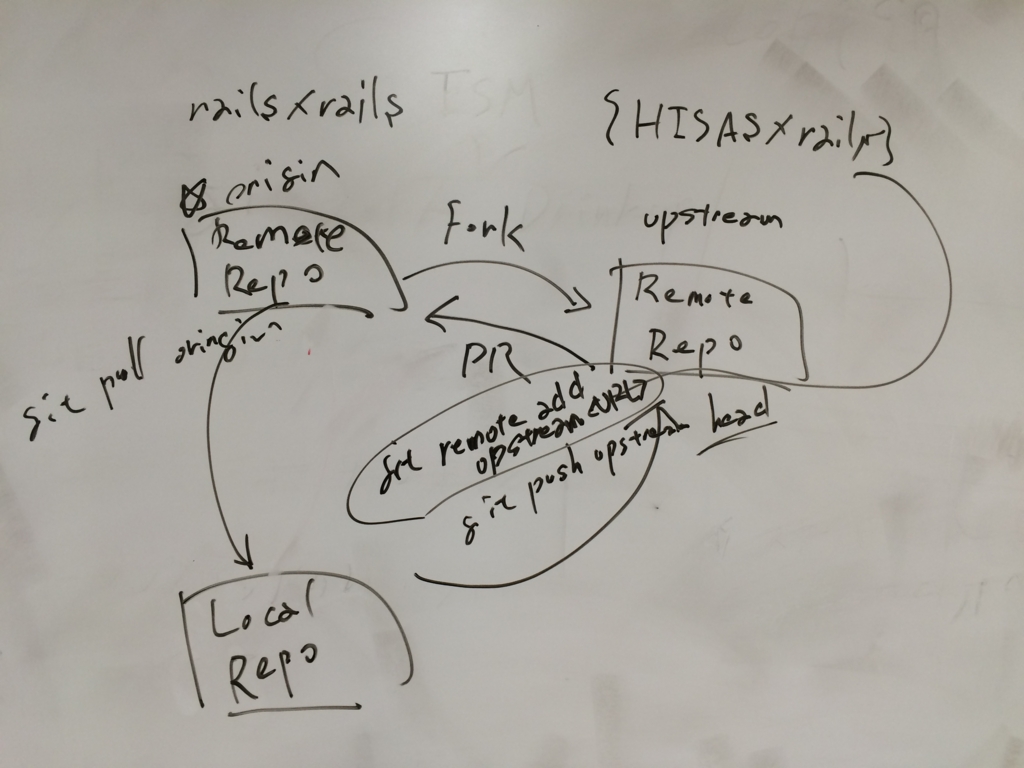 rails × rails
{HISAS × rails}
origin
Remote
Repo
Fork
upstream
Remote
Repo
PR
git pull origin
git remote add
upstream <URL>
git push upstream head
Local
Repo